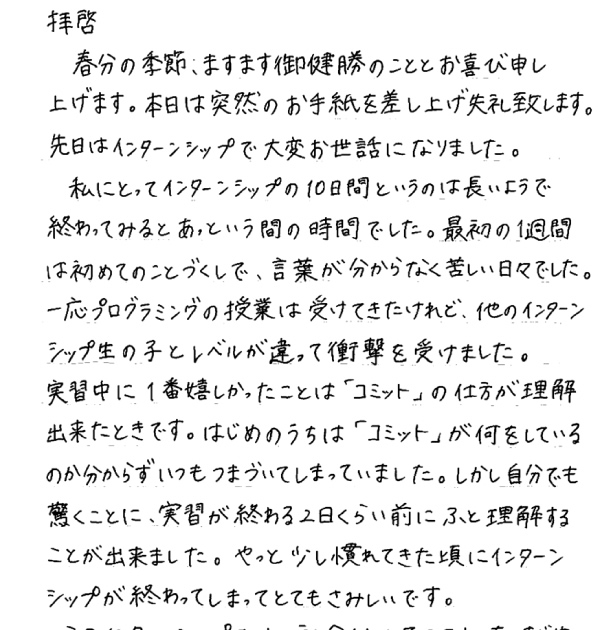 拝啓
春分の季節、ますます御健勝のこととお喜び申し
上げます。本日は突然のお手紙を差し上げ失礼致します。
先日はインターンシップで大変お世話になりました。
私にとってインターンシップの10日間というのは長いようで
終わってみるとあっという間の時間でした。最初の1週間
は初めてのことづくしで、言葉が分からなく苦しい日々でした。
一応プログラミングの授業は受けてきたけれど、他のインターン
シップ生の子とレベルが違って衝撃を受けました。
実習中に1番嬉しかったことは「コミット」の仕方が理解
出来たときです。はじめのうちは「コミット」が何をしている
のか分からずいつもつまづいてしまっていました。しかし自分でも
驚くことに、実習が終わる2日くらい前にふと理解する
ことが出来ました。やっと少し慣れてきた頃にインターン
シップが終わってしまってとてもさみしいです。